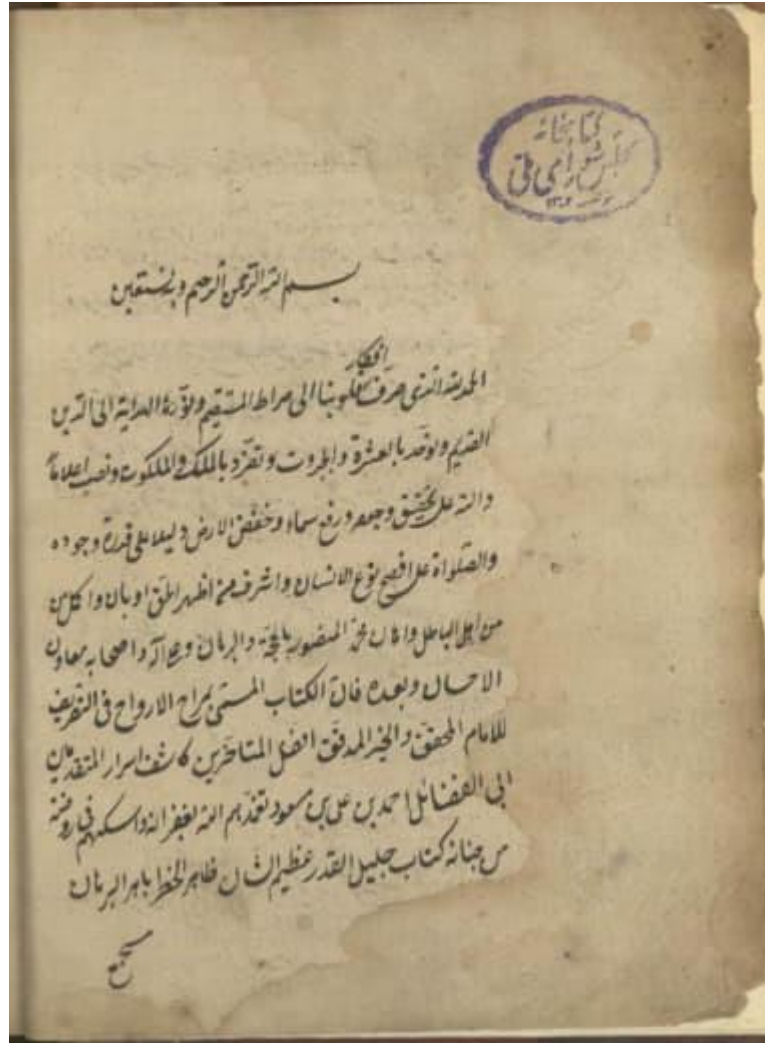 کتابخانه
مجلس شورای ملی
۱۳۰۲
بسم الله الرحمن الرحيم وبه نستعين
افكار
الحمد لله الذى صرف قلوبنا الى صراط المستقيم ونوره الهداية الى الدين
القديم وتوحد بالعزة والجبروت وتفرد بالملك والملكوت ونصب اعلاما
دالة على تحقيق وجوده ورفع سماء وخفض الارض دليلا على قدرة وجوده
والصلواة على افصح نوع الانسان واشرف من اظهر الحق وابان
من اهل الباطل وامان محمد المنصور بالحجة والبرهان وعلى آله واصحابه معاون
الاحسان وبعده فان الكتاب المسمى بمراح الارواح فى التصريف
للامام المحقق والحبر المدقق افضل المتاخرين كاشف اسرار المتقدمين
ابى الفضائل احمد بن على بن مسعود تغمدهم الله بغفرانه واسكنهم فى روضة
من جنانه كتاب جليل القدر عظيم الشان ظاهر الخطر باهر البرهان